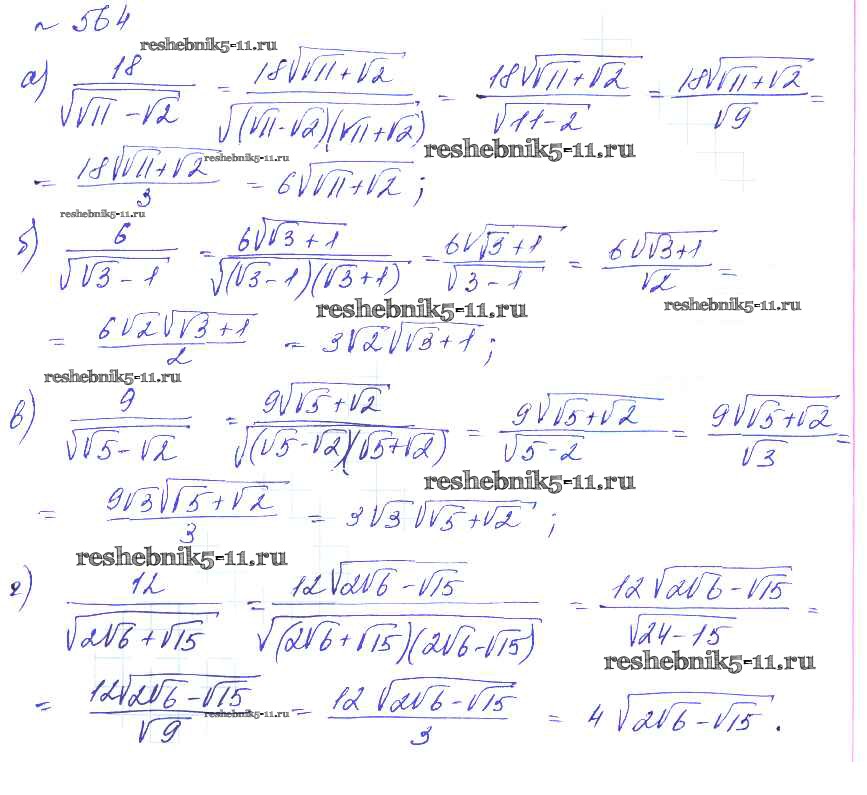 № 564
reshebnik5-11.ru
а) 18/√(√11 - √2) = 18√(√11 + √2)/√((√11 - √2)(√11 + √2)) = 18√(√11 + √2)/√(11 - 2) = 18√(√11 + √2)/√9 =
reshebnik5-11.ru
= 18√(√11 + √2)/3 = 6√(√11 + √2);
reshebnik5-11.ru
reshebnik5-11.ru
б) 6/√(√3 - 1) = 6√(√3 + 1)/√((√3 - 1)(√3 + 1)) = 6√(√3 + 1)/√(3 - 1) = 6√(√3 + 1)/√2 =
reshebnik5-11.ru
reshebnik5-11.ru
= 6√2√(√3 + 1)/2 = 3√2√(√3 + 1);
reshebnik5-11.ru
в) 9/√(√5 - √2) = 9√(√5 + √2)/√((√5 - √2)(√5 + √2)) = 9√(√5 + √2)/√(5 - 2) = 9√(√5 + √2)/√3 =
reshebnik5-11.ru
= 9√3√(√5 + √2)/3 = 3√3√(√5 + √2);
reshebnik5-11.ru
г) 12/√(2√6 + √15) = 12√(2√6 - √15)/√((2√6 + √15)(2√6 - √15)) = 12√(2√6 - √15)/√(24 - 15) =
reshebnik5-11.ru
= 12√(2√6 - √15)/√9 = 12√(2√6 - √15)/3 = 4√(2√6 - √15).
reshebnik5-11.ru